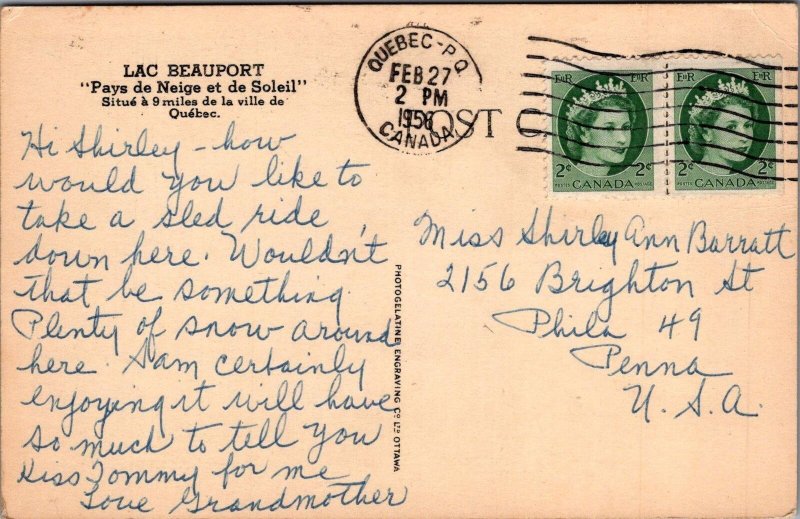 LAC BEAUPORT
"Pays de Neige et de Soleil"
Situé à 9 miles de la ville de
Québec.
Hi Shirley - how
would you like to
take a sled ride
down here. Wouldn't
that be something.
Plenty of snow around
here. I am certainly
enjoying it will have
so much to tell you
Kiss Tommy for me
Love Grandmother
PHOTOGELATINE ENGRAVING CO LTD OTTAWA
POST C
QUEBEC - P.Q.
FEB 27
2 PM
1956
CANADA
E II R
E II R
2¢
2¢
POSTES CANADA POSTAGE
E II R
E II R
2¢
2¢
POSTES CANADA POSTAGE
Miss Shirley Ann Barratt
2156 Brighton St
Phila 49
Penna
U.S.A.